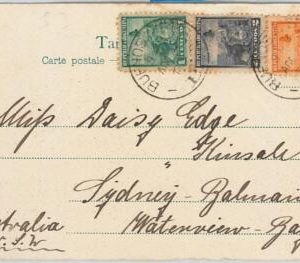 Tar
Carte postale
BUENOS
Miss Daisy Edge
"Kinsale
Sydney-Balmain
Waterview-Ba
stralia
N.S.W